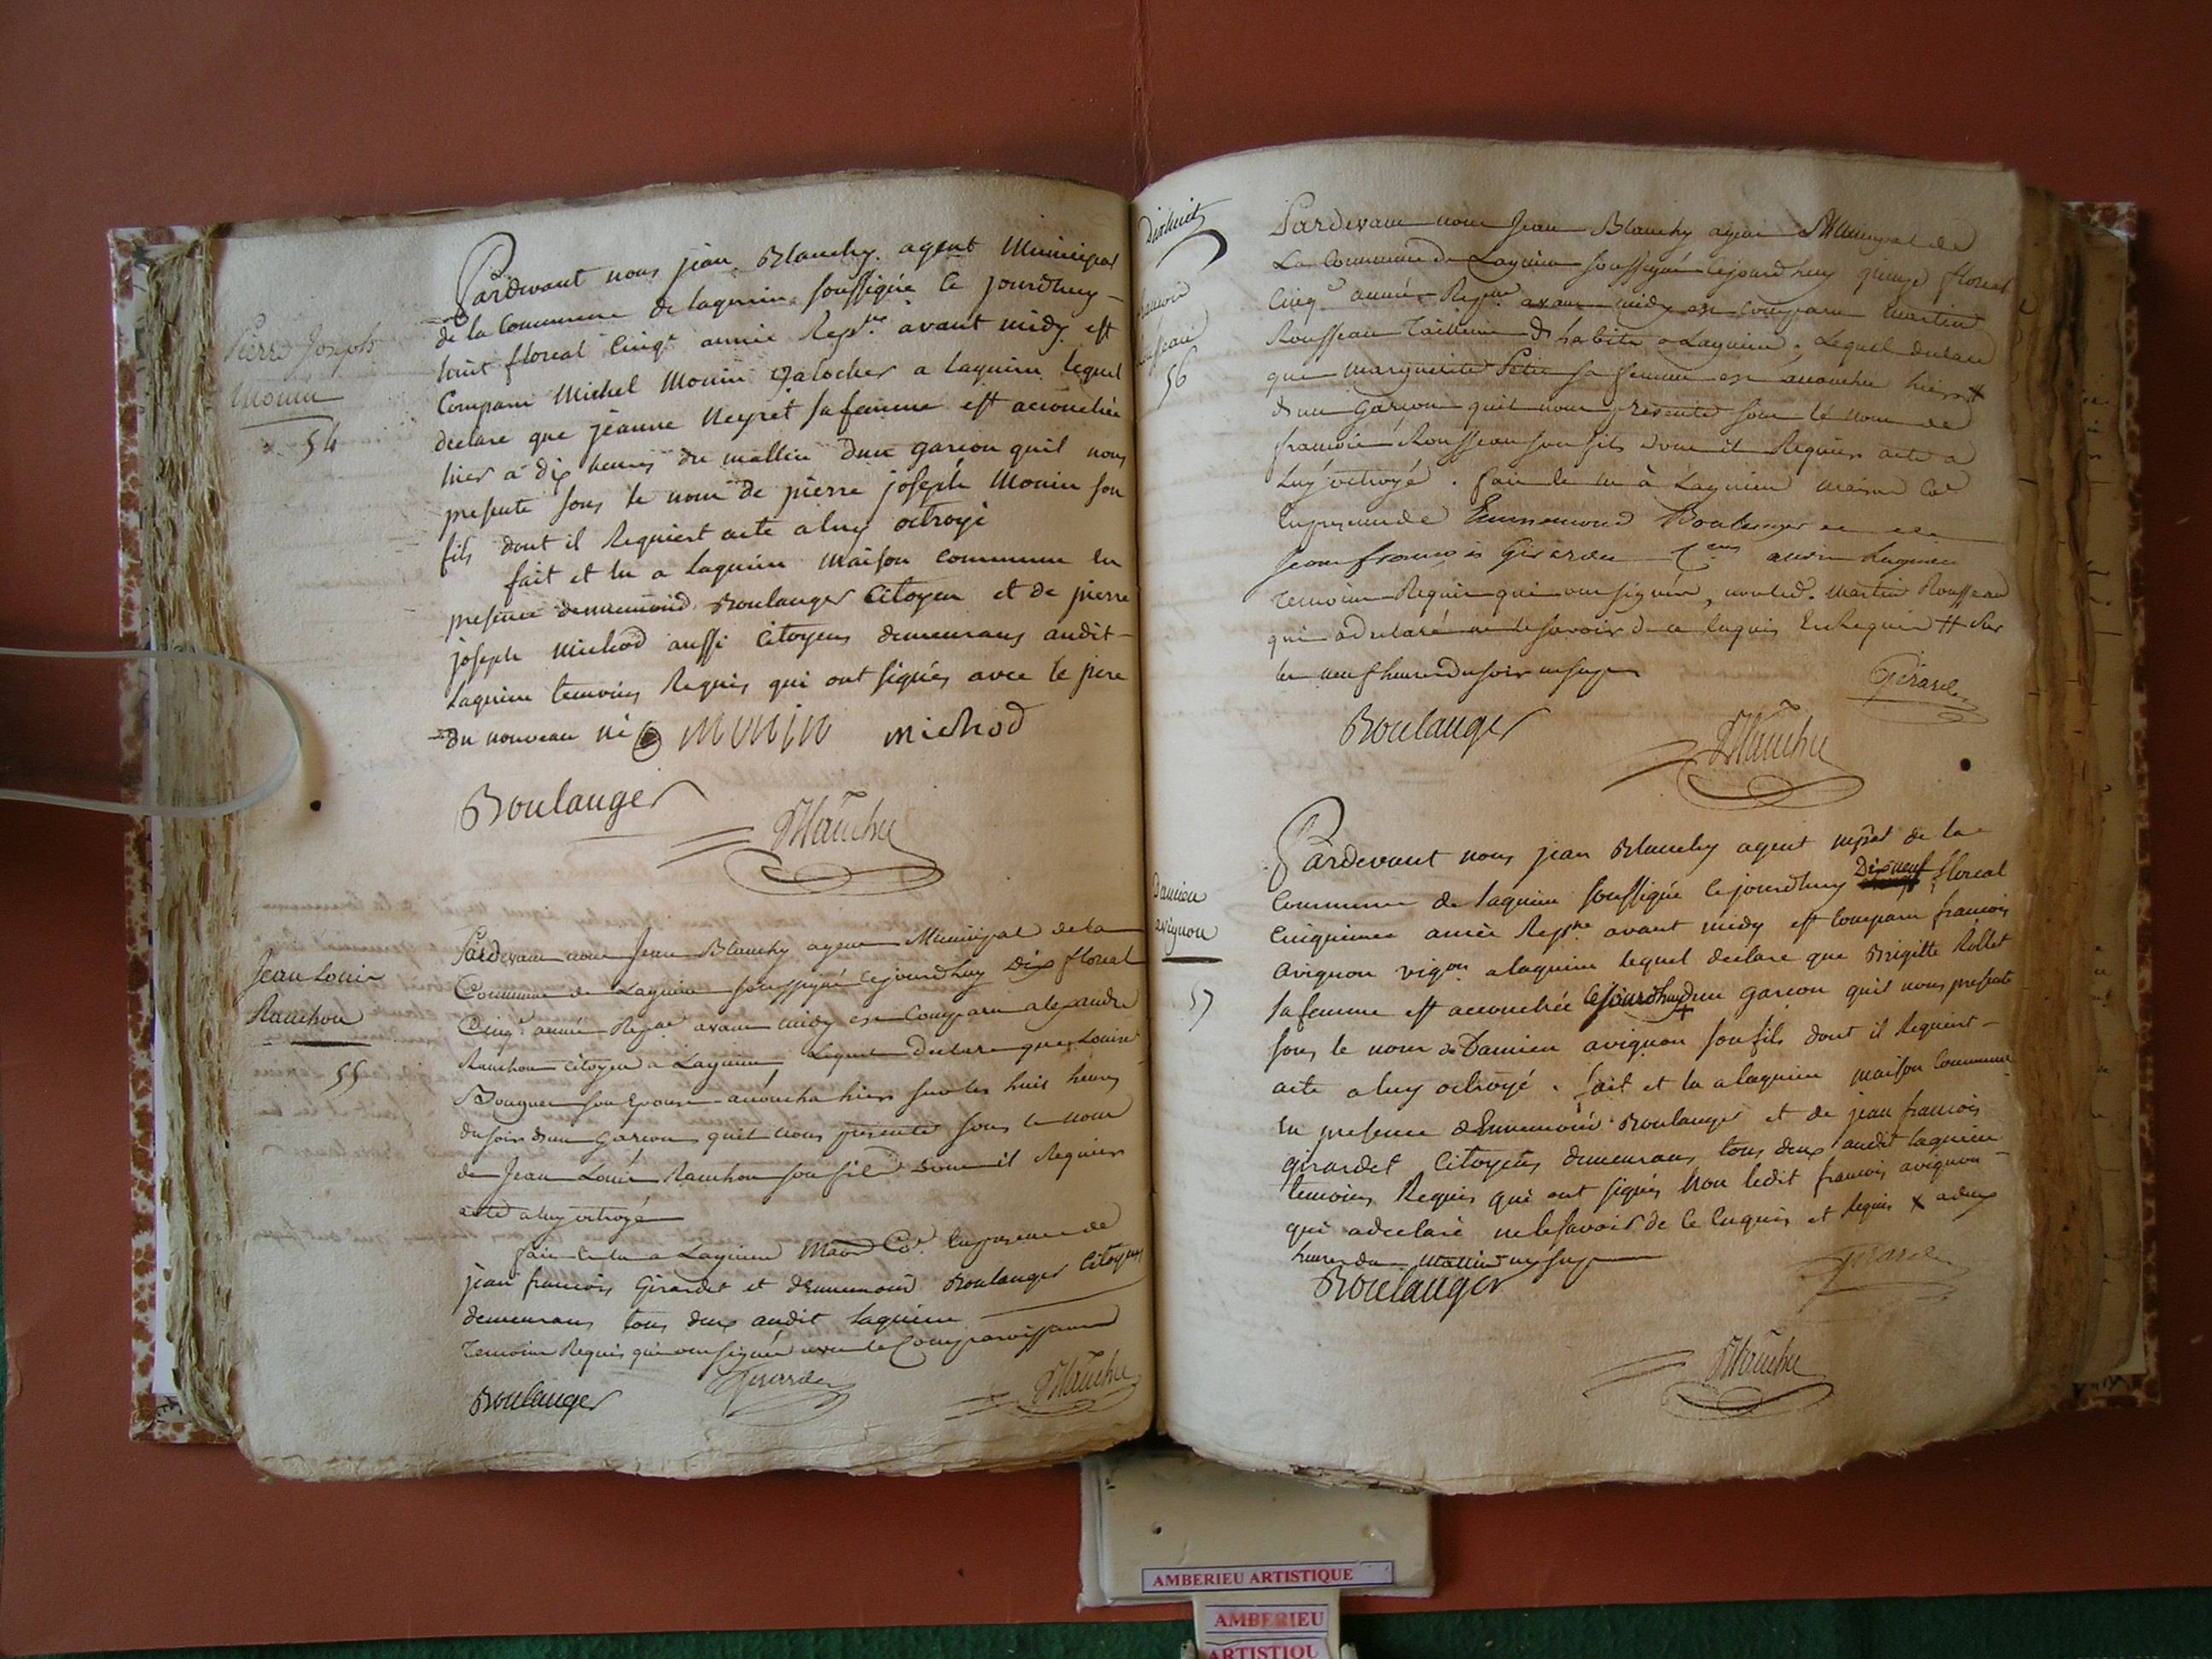 Pierre Joseph
Monin
54
Pardevant nous jean Blanchy agent Municipal
de la Commune de lagnieu soussigné Ce jourdhuy
huit floreal Cinqe année Repne avant midy est
Comparu Michel Monin Galocher a lagnieu lequel
declare que jeanne Neyret sa femme est accouchée
hier a dix heures du mattin dun garcon quil nous
presente sous le nom de pierre joseph Monin son
fils dont il Requiert acte a luy octroyé
fait et lu a lagnieu Maison Commune en
presence dennemond Boulanger Citoyen et de pierre
joseph michod aussi Citoyens demeurans audit
lagnieu temoins Requis qui ont signés avec le pere
du nouveau né monin michod
Boulanger
Blanchy
Jean Louis
Ranchon
55
Pardevant nous Jean Blanchy agent Municipal de la
Commune de Lagnieu soussigné cejourdhuy Dix floreal
Cinqe année Repne avant midy est Comparu alexandre
Ranchon citoyen a Lagnieu, Lequel Declare que Louise
Bouguer son Epouse accoucha hier sur les huit heures
du soir d'un Garcon quil nous présente sous le nom
de Jean Louis Ranchon son fils dont il Requiert
acte a luy octroyé
fait et lu a Lagnieu Maison Cne En presence de
jean francois Girardet et dennemond Boulanger Citoyens
demeurans tous deux audit lagnieu
Temoins Requis qui ont signés avec le Comparoissant
Boulanger Girardet Blanchy
Dixhuit
francois
Rousseau
56
Pardevant nous Jean Blanchy agent Municipal de
La Commune de Lagnieu soussigné Cejourdhuy quinze floreal
Cinqe année Repne avant midy est comparu Martin
Rousseau Tailleur d habits a Lagnieu, Lequel declare
que marguerite Petit sa femme est accouchée hier #
d'un Garcon quil nous présente sous le nom de
francois Rousseau son fils dont il Requiert acte a
Luy octroyé. fait et lu à Lagnieu maison Cne
En presence de Ennemond Boulanger et de
Jean francois Girardet Cens audit Lagnieu
Temoins Requis qui ont signés, non led. Martin Rousseau
qui a declaré ne le savoir de ce enquis Et Requis # sur
les neuf heures du soir
Girardet
Boulanger
Blanchy
Damien
avignon
57
Pardevant nous jean Blanchy agent mpal de la
Commune de lagnieu soussigné Cejourdhuy Dix neuf floreal
Cinquieme année Repne avant midy est Comparu francois
avignon vigon a lagnieu lequel declare que Brigitte Rollet
sa femme est accouchée Cejourdhuy + dun garcon quil nous presente
sous le nom de Damien avignon son fils dont il Requiert
acte a luy octroyé. fait et lu a lagnieu maison Commune
En presence dEnnemond Boulanger et de jean francois
girardet Citoyens demeurans tous deux audit lagnieu
temoins Requis qui ont signés Non ledit francois avignon
qui a declaré ne le savoir de Ce Enquis et Requis x a deux
heures du mattin
Boulanger
Girardet
Blanchy
AMBERIEU ARTISTIQUE
AMBERIEU
ARTISTIQU